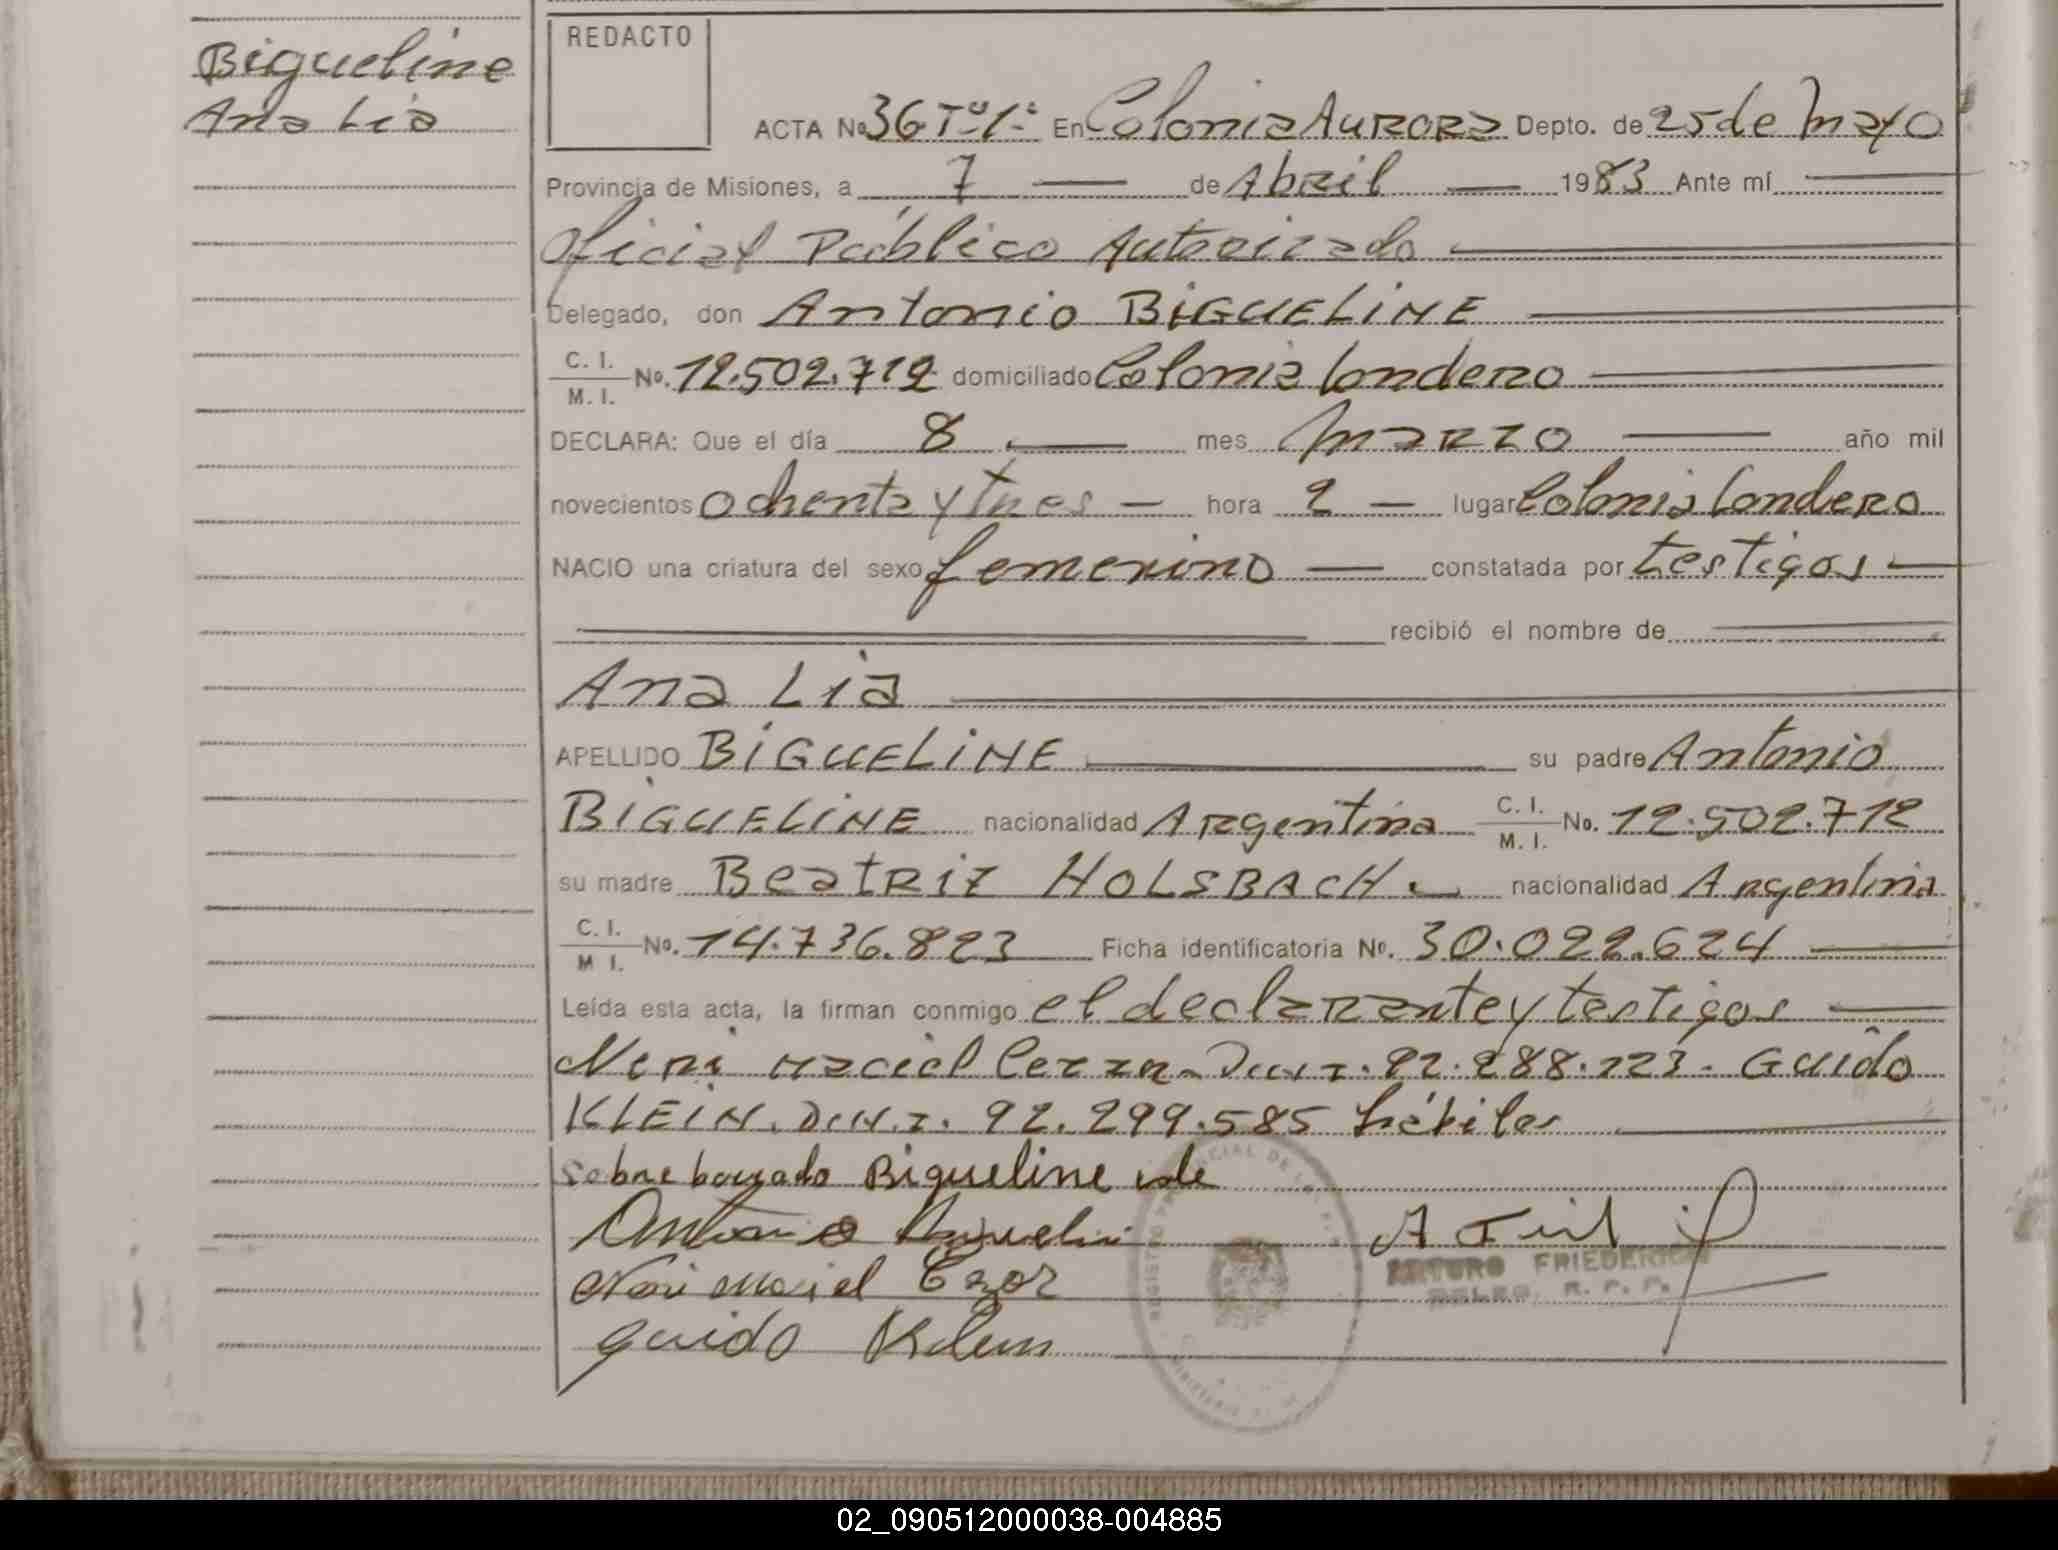 Bigueline
Ana Lia
REDACTO
ACTA No 36 Tº 1º En Colonia Aurora Depto. de 25 de Mayo
Provincia de Misiones, a 7 de Abril 1983 Ante mí
Oficial Público Autorizado
Delegado, don Antonio BIGUELINE
C. I.
M. I. No. 12.502.712 domiciliado Colonia Londero
DECLARA: Que el día 8 mes Marzo año mil
novecientos ochenta y tres hora 2 lugar Colonia Londero
NACIO una criatura del sexo femenino constatada por testigos
recibió el nombre de
Ana Lia
APELLIDO BIGUELINE su padre Antonio
BIGUELINE nacionalidad Argentina C. I. M. I. No. 12.502.712
su madre Beatriz HOLSBACH nacionalidad Argentina
C. I. M I. No. 14.736.823 Ficha identificatoria No. 30.022.624
Leída esta acta, la firman conmigo el declarante y testigos
Neri Maciel D.N.I. 92.288.123. Guido
KLEIN. D.N.I. 92.299.585 hábiles
Sobre borrado Bigueline vale
Antonio
Neri Maciel
Guido Klein
ARTURO FRIEDERICH
DELEG. R. P. P.
02_090512000038-004885